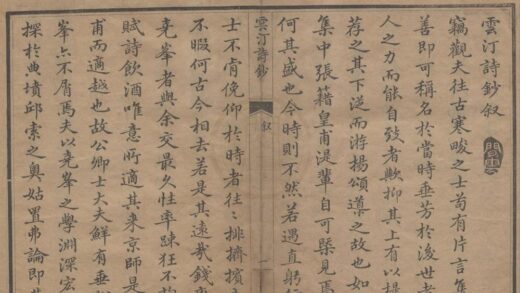 雲汀詩鈔叙
竊觀夫往古寒畯之士苟有片言隻
善即可稱名於當時垂芳於後世者
人之力而能自致者歟抑其上有以提
荐之其下從而游揚頌讚之故也如
集中張籍皇甫湜輩自可槩見焉
何其盛也今時則不然若遇直躬行
雲汀詩鈔
叙
一
士不肯俛仰於時者往〻排擠擯
不暇何古今相去若是其遠哉錢
尭峯者與余交最久性率踈狂不
賦詩飲酒唯意所適其来京師是
甫而適越也故公卿士大夫鮮有垂
峯亦不屑焉夫以尭峯之學淵深宏
探於典墳邱索之奥姑置弗論即其